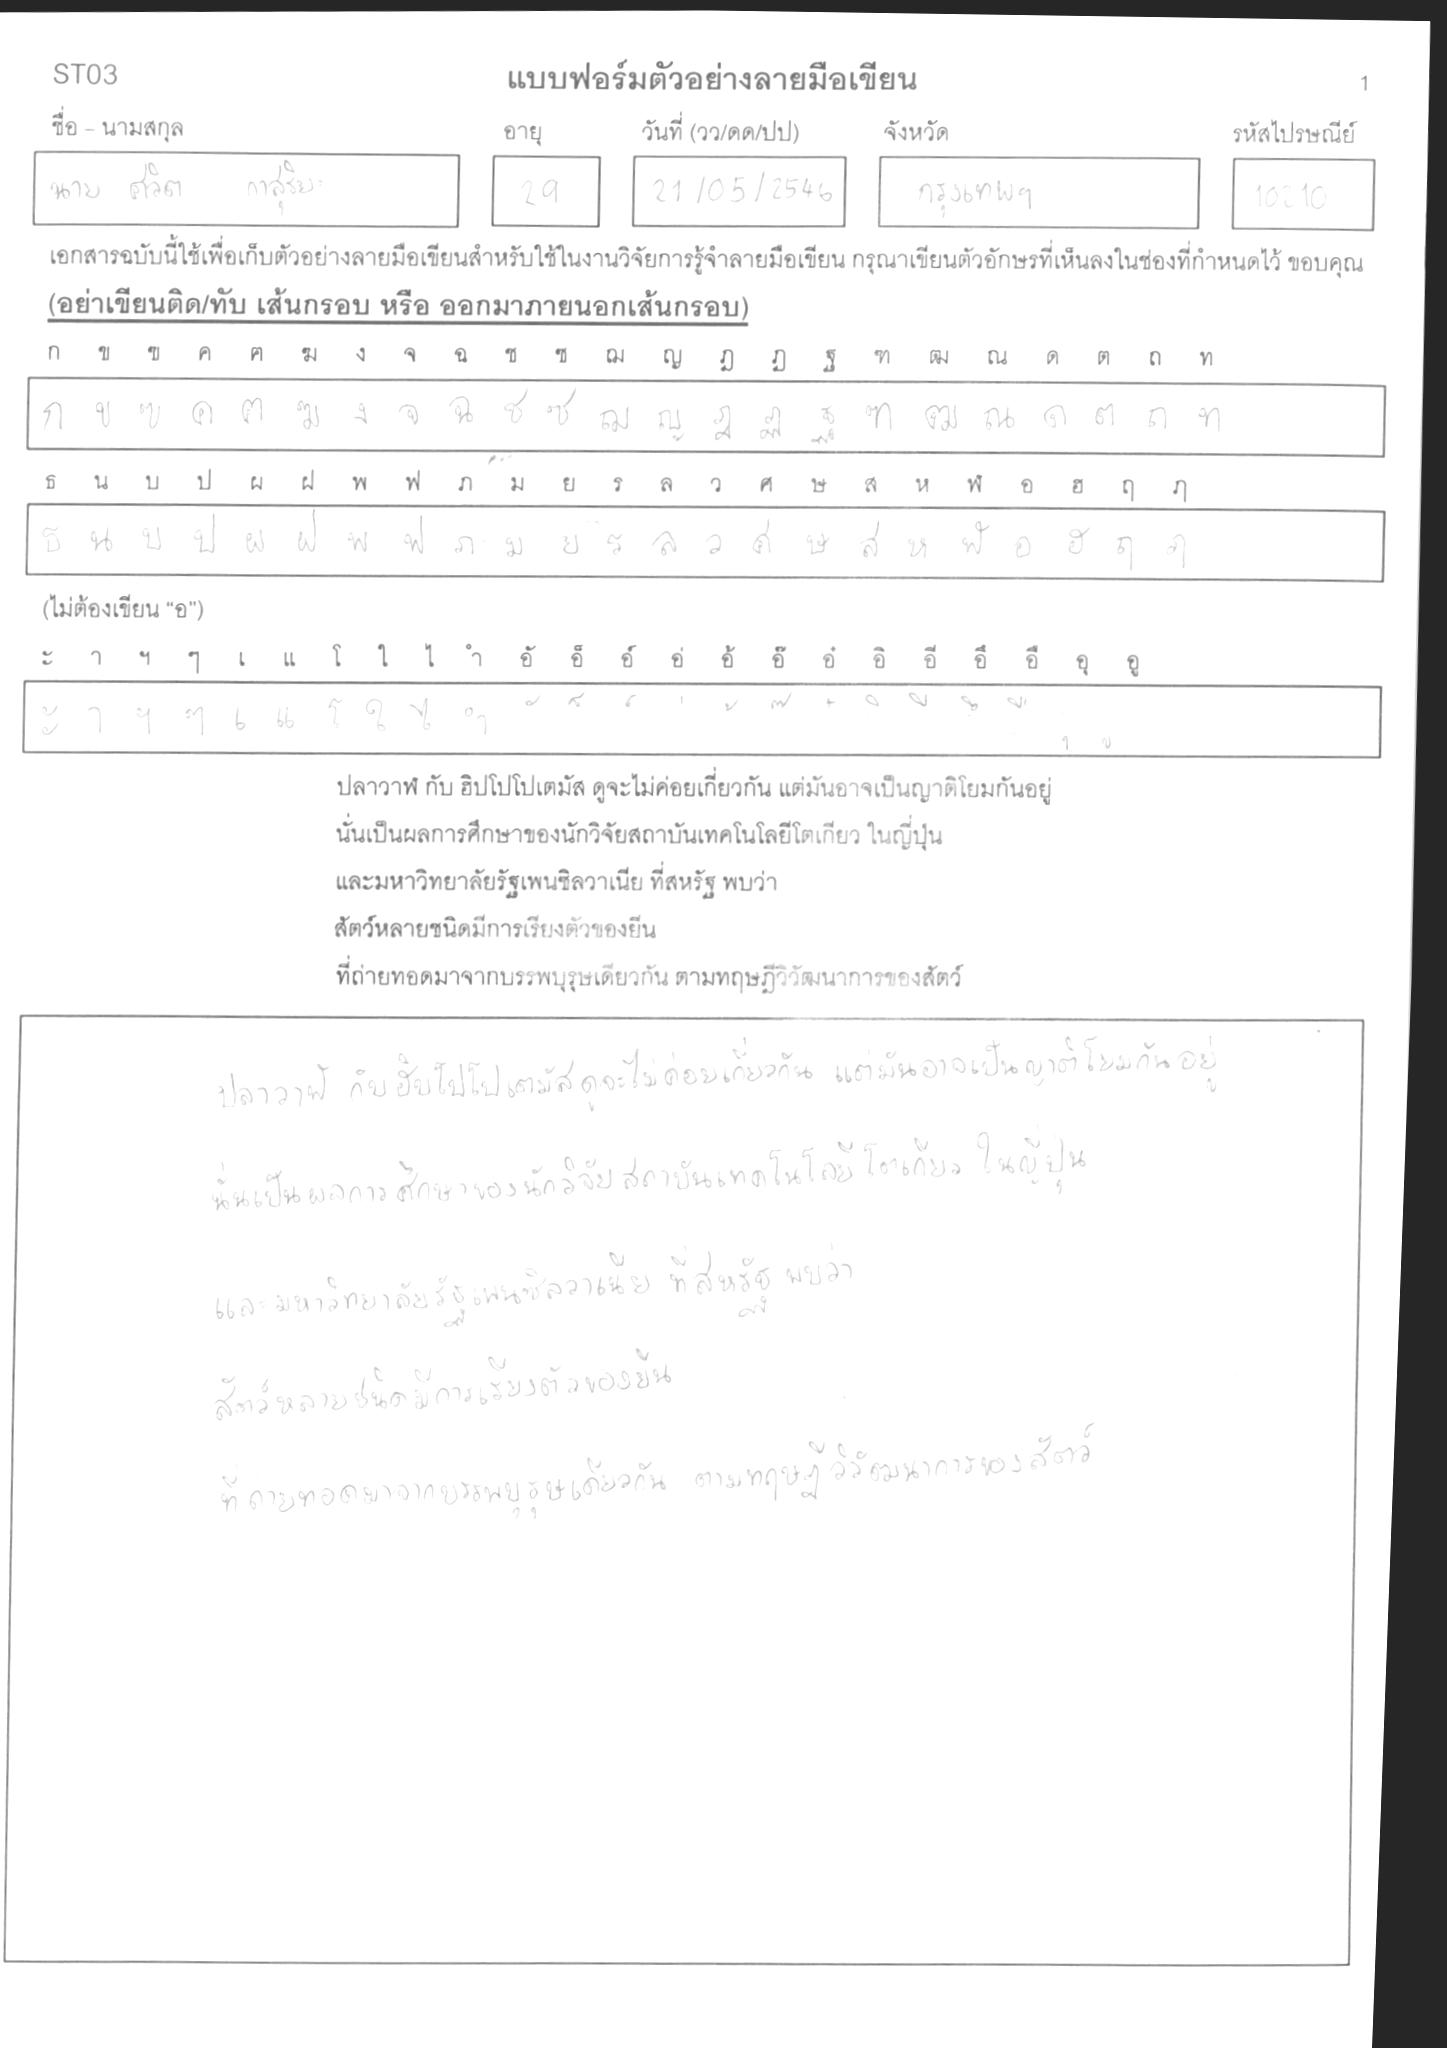 ST03 แบบฟอร์มตัวอย่างลายมือเขียน 1
ชื่อ – นามสกุล อายุ วันที่ (วว/ดด/ปป) จังหวัด รหัสไปรษณีย์
นาย ศวิต กาสุริยะ 29 21/05/2546 กรุงเทพฯ 10210
เอกสารฉบับนี้ใช้เพื่อเก็บตัวอย่างลายมือเขียนสำหรับใช้ในงานวิจัยการรู้จำลายมือเขียน กรุณาเขียนตัวอักษรที่เห็นลงในช่องที่กำหนดไว้ ขอบคุณ
(อย่าเขียนติด/ทับ เส้นกรอบ หรือ ออกมาภายนอกเส้นกรอบ)
ก ข ฃ ค ฅ ฆ ง จ ฉ ช ซ ฌ ญ ฎ ฏ ฐ ฑ ฒ ณ ด ต ถ ท
ก ข ฃ ค ฅ ฆ ง จ ฉ ช ซ ฌ ญ ฎ ฏ ฐ ฑ ฒ ณ ด ต ถ ท
ธ น บ ป ผ ฝ พ ฟ ภ ม ย ร ล ว ศ ษ ส ห ฬ อ ฮ ฤ ฦ
ธ น บ ป ผ ฝ พ ฟ ภ ม ย ร ล ว ศ ษ ส ห ฬ อ ฮ ฤ ฦ
(ไม่ต้องเขียน “อ”)
ะ า ฯ ๆ เ แ โ ใ ไ ำ อั อ็ อ์ อ่ อ้ อ๊ อ๋ อิ อี อึ อื อุ อู
ะ า ฯ ๆ เ แ โ ใ ไ ำ ั ็ ์ ่ ้ ๊ ๋ ิ ี ึ ื ุ ู
ปลาวาฬ กับ ฮิปโปโปเตมัส ดูจะไม่ค่อยเกี่ยวกัน แต่มันอาจเป็นญาติโยมกันอยู่
นั่นเป็นผลการศึกษาของนักวิจัยสถาบันเทคโนโลยีโตเกียว ในญี่ปุ่น
และมหาวิทยาลัยรัฐเพนซิลวาเนีย ที่สหรัฐ พบว่า
สัตว์หลายชนิดมีการเรียงตัวของยีน
ที่ถ่ายทอดมาจากบรรพบุรุษเดียวกัน ตามทฤษฎีวิวัฒนาการของสัตว์
ปลาวาฬ กับฮิบโปโปเตมัสดูจะไม่ค่อยเกี่ยวกัน แต่มันอาจเป็นญาติโยมกันอยู่
นั่นเป็นผลการศึกษาของนักวิจัยสถาบันเทคโนโลยีโตเกียว ในญี่ปุ่น
และมหาวิทยาลัยรัฐเพนซิลวาเนีย ที่สหรัฐ พบว่า
สัตว์หลายชนิดมีการเรียงตัวของยีน
ที่ถ่ายทอดมาจากบรรพบุรุษเดียวกัน ตามทฤษฎีวิวัฒนาการของสัตว์